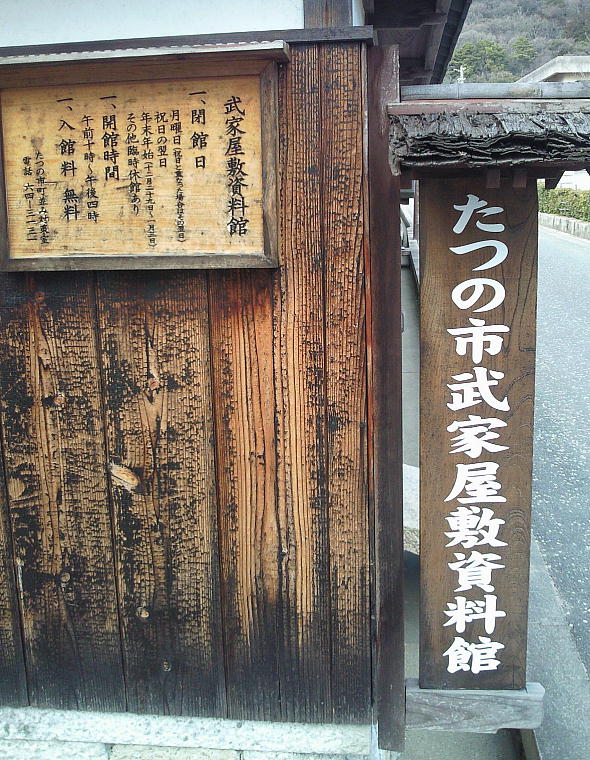 武家屋敷資料館
一、閉館日
月曜日（祝日に重なった場合はその翌日）
祝日の翌日
年末年始（十二月二十八日〜一月三日）
その他臨時休館あり
一、開館時間
午前十時〜午後四時
一、入館料 無料
たつの市
電話 六四-三一三一
たつの市武家屋敷資料館